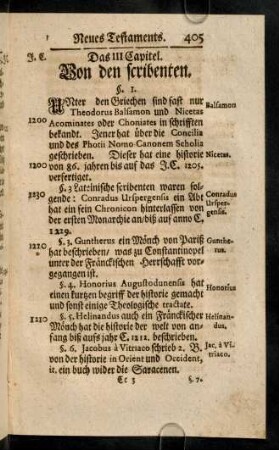 Neues Testaments. 405
J. C. Das III Capitel.
Von den scribenten.
§. 1.
UNter den Griechen sind fast nur Balsamon
Theodorus Balsamon und Nicetas
1200 Acominates oder Choniates in schrifften
bekandt. Jener hat über die Concilia
und des Photii Nomo-Canonem Scholia
geschrieben. Dieser hat eine historie Nicetas.
1200 von 86. jahren bis auf das J.C. 1205.
verfertiget.
§. 2 Lateinische scribenten waren sol- Conradus
1230 gende: Conradus Urspergensis ein Abt Ursper-
hat ein sein Chronicon hinterlassen von gensis.
der ersten Monarchie an/biß auf anno C.
1229.
§. 3. Guntherus ein Mönch von Pariß Gunthe-
1220 hat beschrieben/ was zu Constantinopel rus.
unter der Fränckischen Herrschafft vor-
gegangen ist.
§. 4. Honorius Augustodunensis hat Honorius
einen kurtzen begriff der historie gemacht
und sonst einige Theologische tractate.
§. 5. Helinandus auch ein Fränckischer Helinan-
1210 Mönch hat die historie der welt von an- dus.
fang biß aufs jahr C. 1212. beschrieben.
§. 6. Jacobus à Vitriaco schrieb 2. B. Jac. à Vi-
von der historie in Orient und Occident, triaco.
it. ein buch wider die Saracenen.
Cc 3 §. 7.